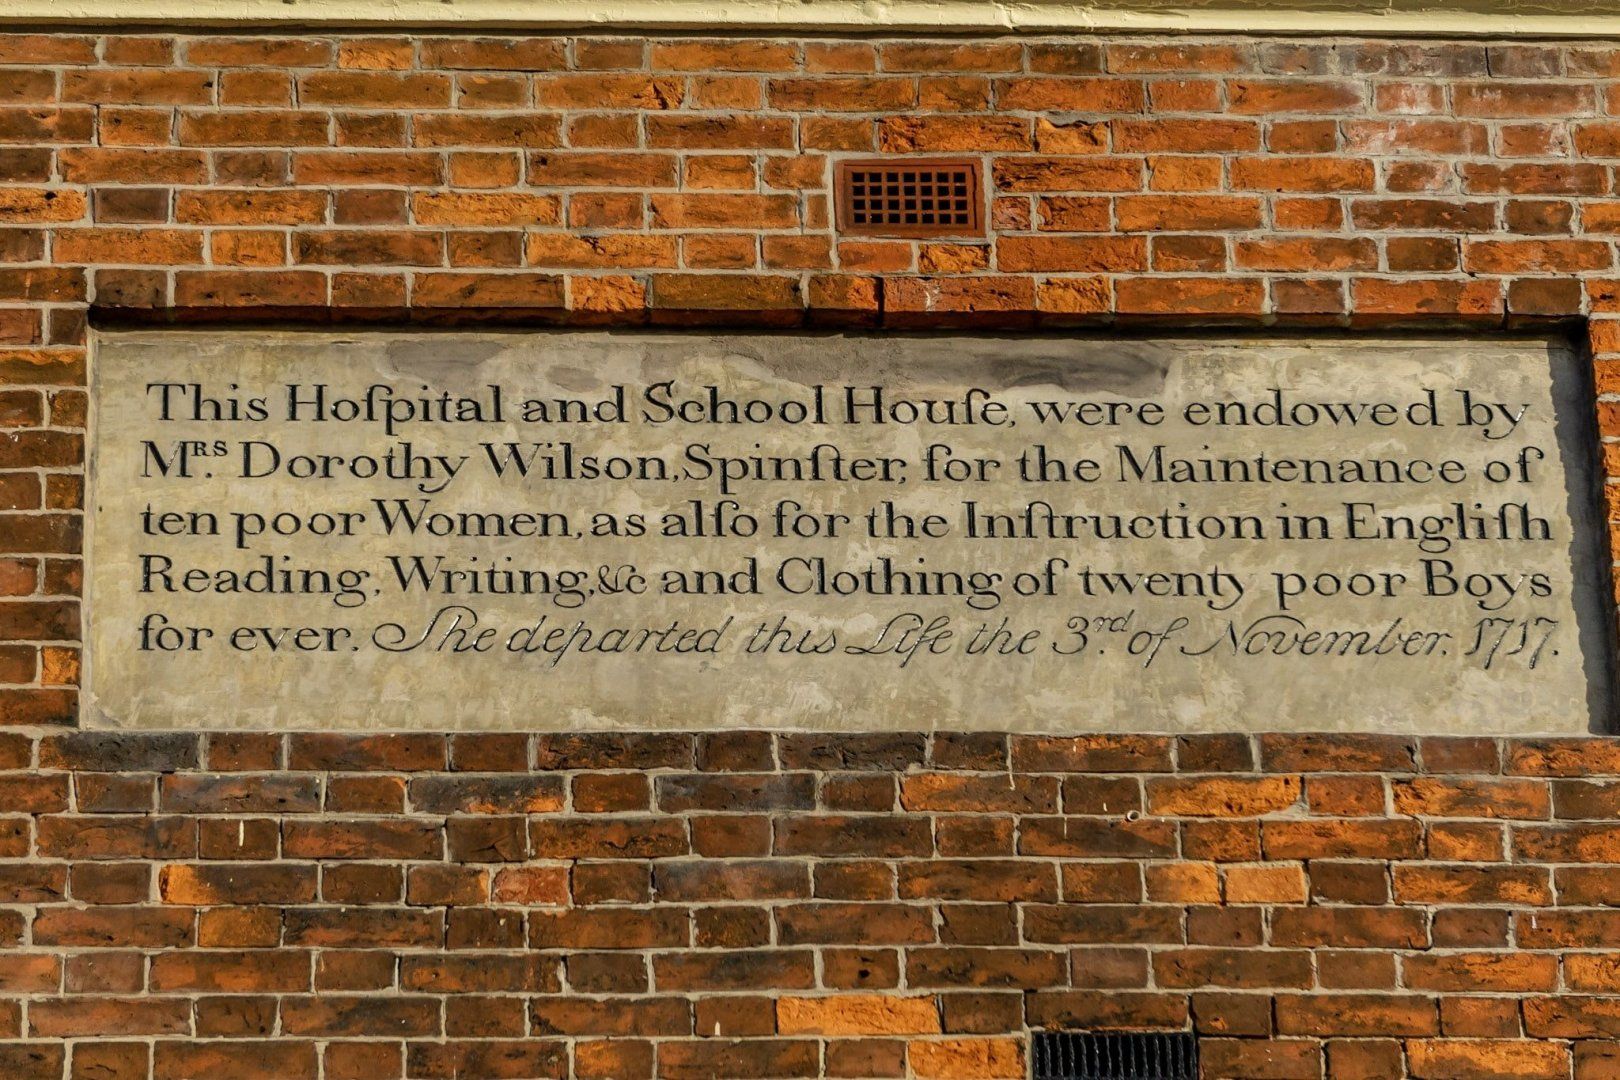 This Hoſpital and School Houſe, were endowed by
Mʀs. Dorothy Wilson, Spinſter, for the Maintenance of
ten poor Women, as alſo for the Inſtruction in Engliſh
Reading, Writing, &c and Clothing of twenty poor Boys
for ever. She departed this Life the 3rd. of November. 1717.